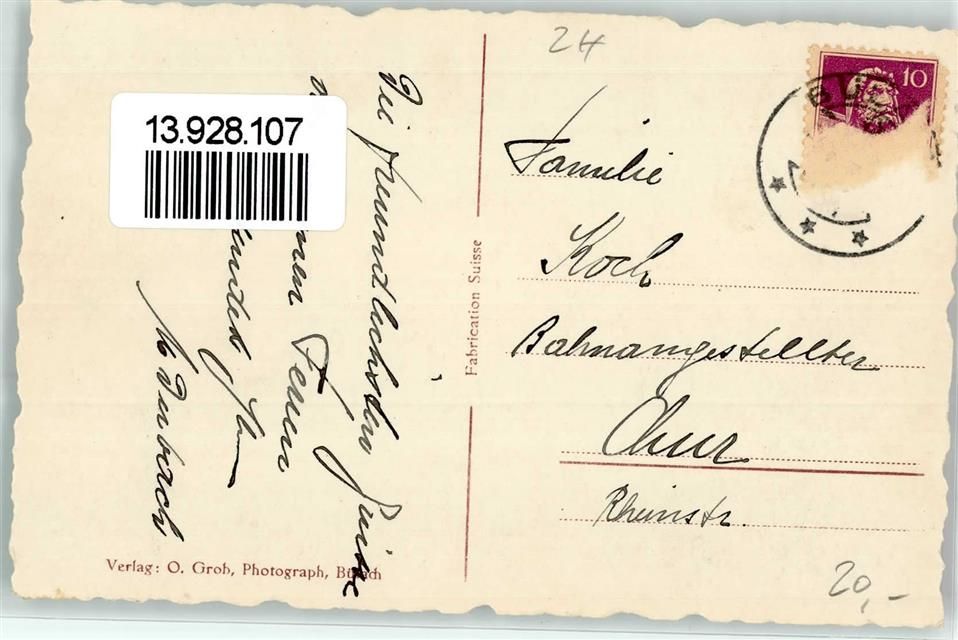 24
10
BÜ
13.928.107
Die freundlichsten Grüsse
Ferien
Familie
Koch
Bahnangestellter
Chur
Rheinstr.
Fabrication Suisse
Verlag: O. Grob, Photograph, Bülach
20,-